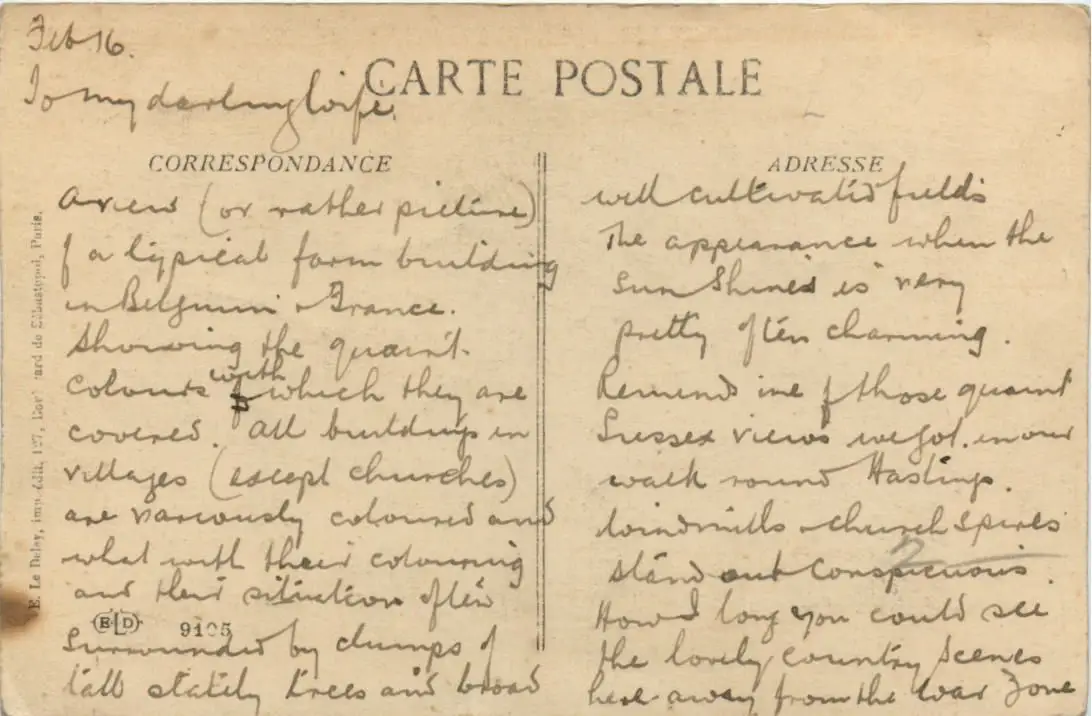 Feb 16.
To my darling wife.
CARTE POSTALE
CORRESPONDANCE
A view (or rather picture)
of a typical farm building
in Belgium & France.
Showing the quaint
colours with which they are
covered. All buildings in
villages (except churches)
are variously coloured and
what with their colouring
and their situation often
surrounded by clumps of
tall stately trees and broad
ELD 9105
E. Le Deley, imp.-édit., 127, Boul ard de Sébastopol, Paris.
ADRESSE
well cultivated fields
The appearance when the
sun shines is very
pretty often charming.
Reminds me of those quaint
Sussex views we got in our
walk round Hastings.
Windmills & church spires
stand out conspicuous.
2
How I long you could see
the lovely country scenes
here away from the War Zone